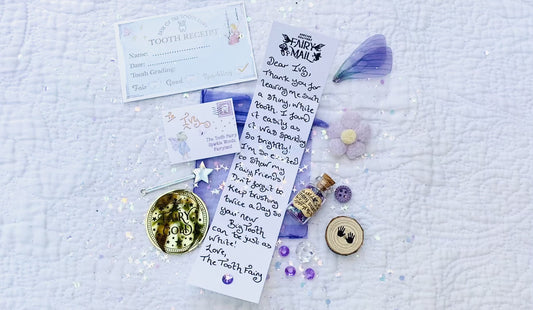 TOOTH RECEIPT
Name:
Date:
Tooth Grading:
Fair
Good
FAIRY
MAIL
Dear Ivy,
Thank you for
leaving me such
a shiny white
tooth. I found
it easily as
it was sparkling
so brightly!
I'm so
to show my
Fairy Friends!
Don't forget to
keep brushing
twice a day so
your new
Big Tooth
can be just as
white!
Love,
The Tooth Fairy
Ivy
The Tooth Fairy
Sparkle Woods
Fairyland
FAIRY
GOLD